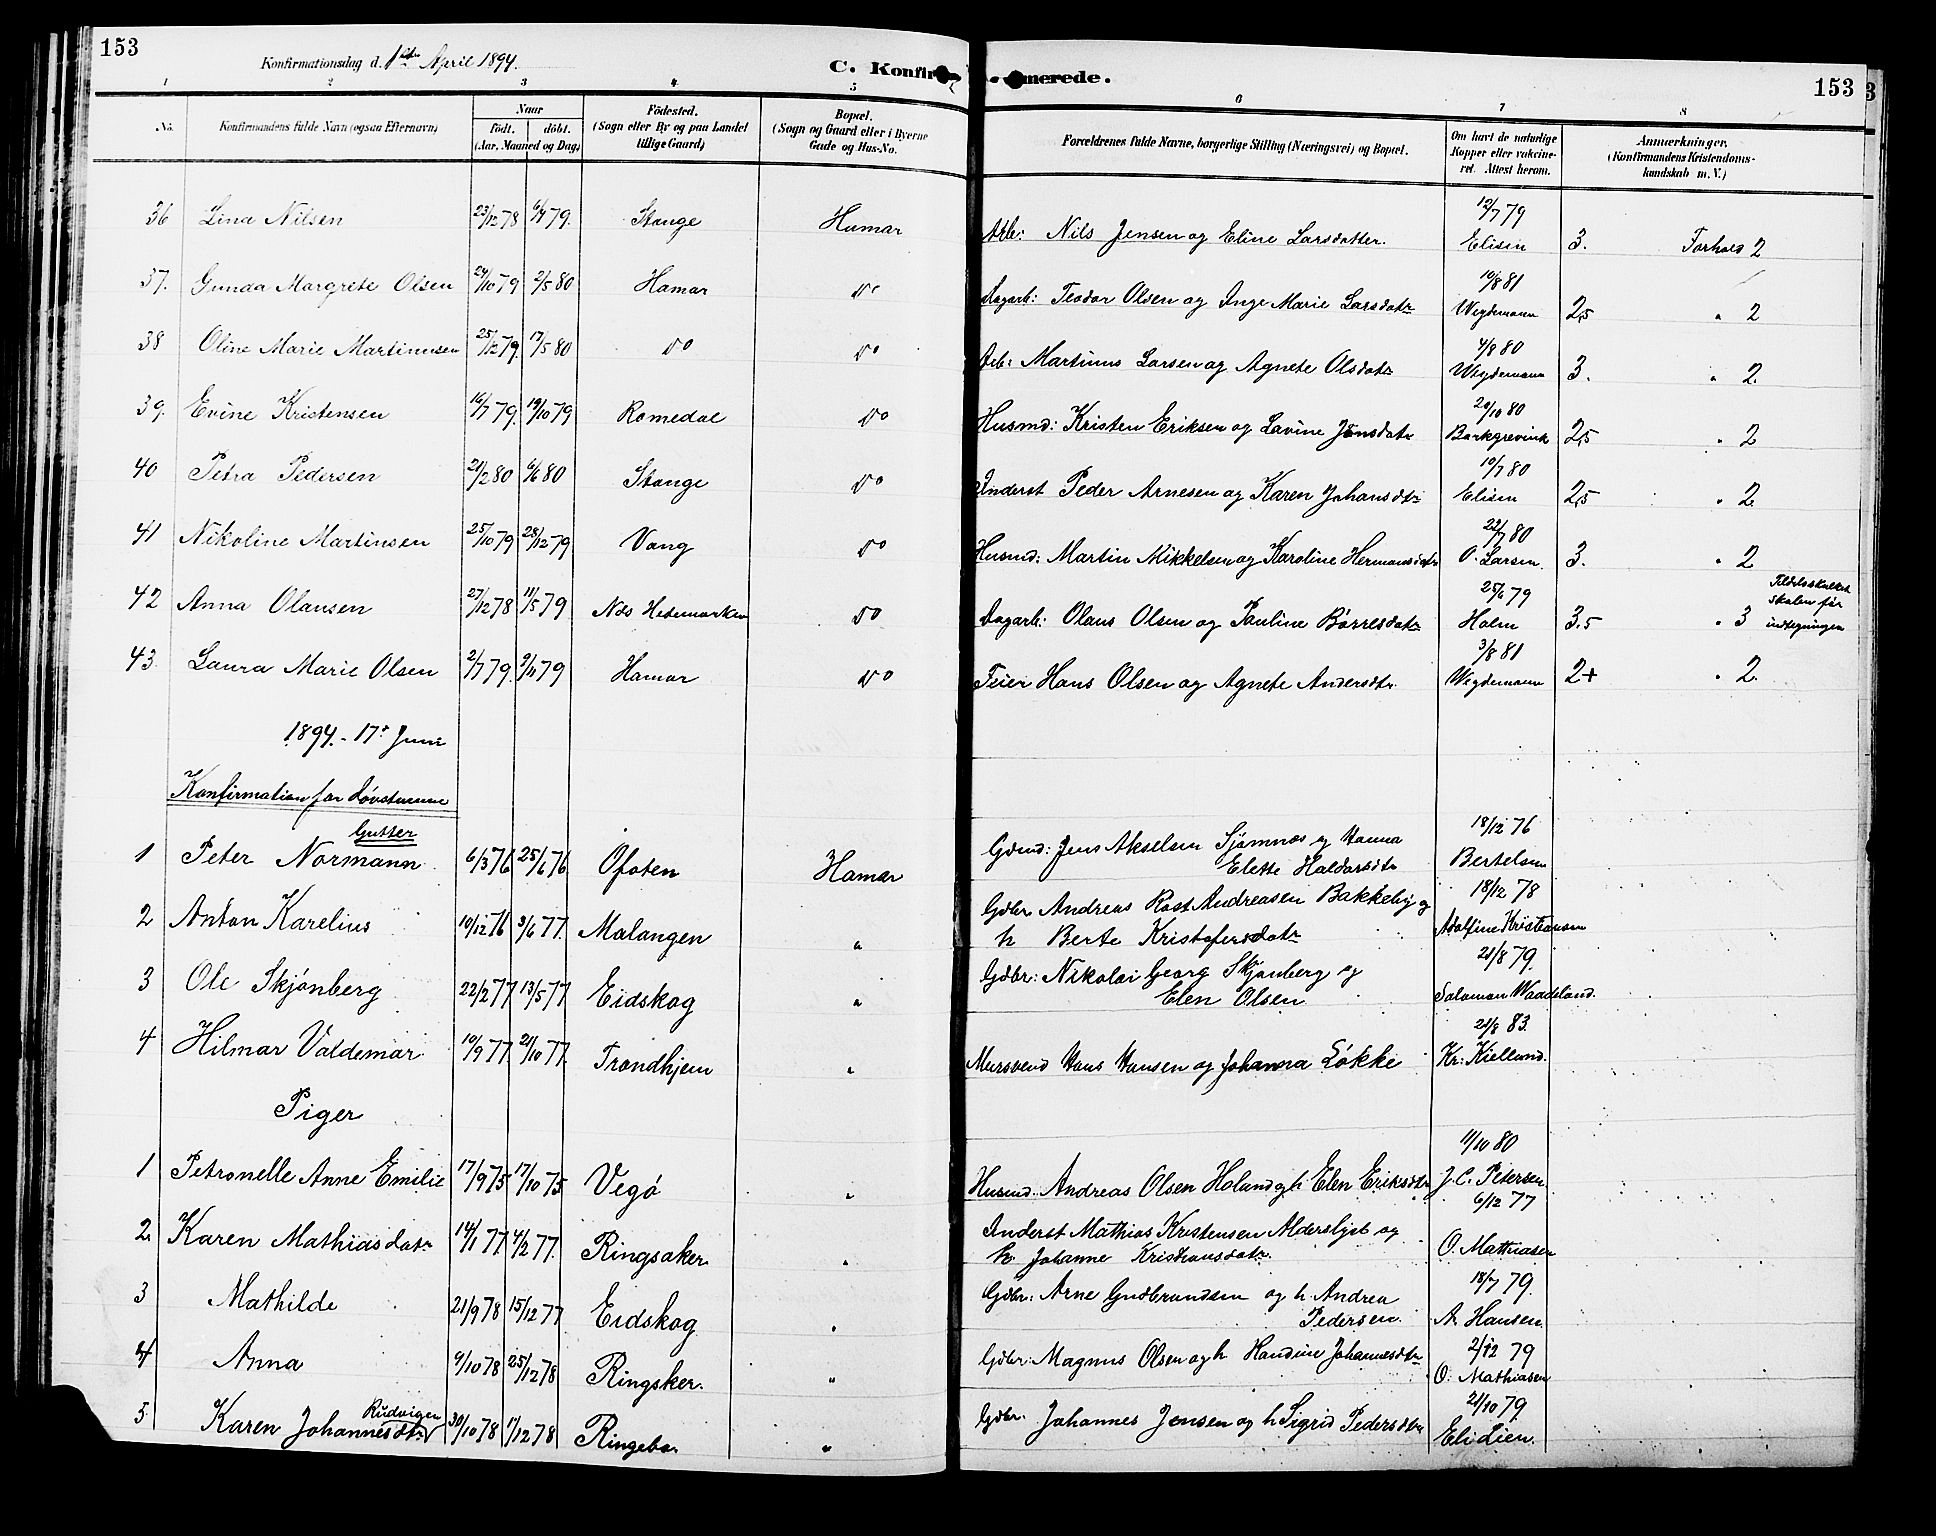 153
Konfirmationsdag d. 1ste April 1894.
C. Konfirmerede.
153
1 2 3 4 5 6 7 8
No. Konfirmandens fulde Navn (ogsaa Efternavn)
Naar født. døbt. (Aar, Maaned og Dag)
Fødested. (Sogn eller By og paa Landet tillige Gaard)
Bopæl. (Sogn og Gaard eller i Byerne Gade og Hus-No.
Forældrenes fulde Navne, borgerlige Stilling (Næringsvei) og Bopæl.
Om havt de naturlige Kopper eller vakcineret. Attest herom.
Anmærkninger. (Konfirmandens Kristendomskundskab m. V.)
36 Lina Nilsen 23/12 78 6/4 79. Stange Hamar Arb: Nils Jensen og Eline Larsdatter. 12/7 79 Elisen 3. Forhold 2
37. Gunda Margrete Olsen 24/10 79 2/5 80 Hamar do Dagarb: Teodor Olsen og Inge Marie Larsdatr 10/8 81 Wegdemann 2,5 " 2
38 Oline Marie Martinusen 25/12 79. 17/5 80 do do Arb: Martinus Larsen og Agnete Olsdatr 4/8 80 Wegdemann 3. " 2.
39. Evine Kristensen 16/7 79. 19/10 79 Romedal do Husmd: Kristen Eriksen og Lavine Jensdatr 20/10 80 Borkgrevink 2,5 " 2
40 Petra Pedersen 21/2 80 6/6 80 Stange do Inderst Peder Arnesen og Karen Johansdtr 10/7 80 Elisen 2,5 " 2.
41 Nikoline Martinsen 25/10 79 28/12 79 Vang do Husmd: Martin Mikkelsen og Karoline Hermansdtr 22/7 80 O. Larsen. 3. " 2
42 Anna Olausen 27/12 78 11/5 79 Nds Hedemarken do Dagarb: Olaus Olsen og Pauline Børresdatr 25/6 79 Holm 3.5 " 3 skolen før
43. Laura Marie Olsen 2/7 79. 9/11 79 Hamar do Feier Hans Olsen og Agnete Andersdtr. 3/8 81 Wegdemann 2+ " 2.
1894. - 17' Juni
Konfirmation for døvstumme
Gutter
1 Peter Normann 6/3 76 25/6 76 Ofoten Hamar Gdmd: Jens Akselsen Sjømnæs og Hanna Elette Haldorsdtr 18/12 76 Bertelsen
2 Anton Karelius 10/12 76 3/6 77. Malangen " Gdbr Andreas Rost Andreasen Bakkeby og h Berte Kristofersdatr 18/12 78 Adolfine Kristiansen
3 Ole Skjønberg 22/2 77 13/5 77 Eidskog " Gdbr: Nikolai Georg Skjønberg og Elen Olsen 21/8 79. Salamon Waadeland.
4 Hilmar Valdemar 10/9 77. 21/10 77. Trondhjem " Mursvend Hans Hansen og Johanna Løkke 21/8 83. Kr: Kielland.
Piger
1 Petronelle Anne Emilie 17/9 75 17/10 75 Vegø " Husmd. Andreas Olsen Holand og h Elen Eriksdtr 11/10 80 J. C. Petersen
2. Karen Mathiasdatr 14/1 77 4/2 77. Ringsaker " Inderst Mathias Kristensen Alderslyst og h. Johanne Kristiansdatr. 6/12 77 O. Mathiasen
3 Mathilde 21/9 78 15/12 77 Eidskog " Gdbr: Arne Gudbrandsen og h. Andrea Pedersen. 18/7 79. A. Hansen.
4 Anna 9/10 78 25/12 78 Ringsker. " Gdbr: Magnus Olsen og h Handine Johannesdtr 2/12 79 O. Mathiasen
5. Karen Johannesdtr Rudvigen 30/10 78 1/12 78 Ringebo. " Gdbr. Johannes Jensen og h Sigrid Pedersdtr 21/10 79. Eli Lien.